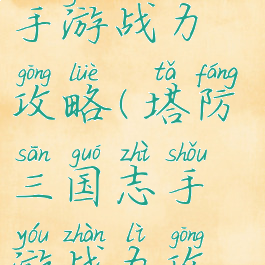 手游战力
gōng lüè tǎ fáng
攻略(塔防
sān guó zhì shǒu
三国志手
yóu zhàn lì gōng
游战力攻